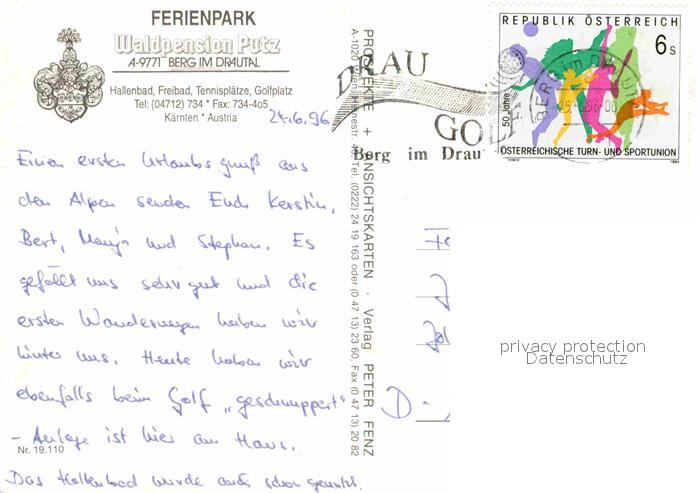 FERIENPARK
Waldpension Putz
A-9771 BERG IM DRAUTAL
Hallenbad, Freibad, Tennisplätze, Golfplatz
Tel: (04712) 734 * Fax: 734-4o5
Kärnten * Austria
24.6.96
Einen ersten Urlaubsgruß aus
den Alpen senden Euch Kerstin,
Bert, Manja und Stephan. Es
gefällt uns sehr gut und die
ersten Wanderungen haben wir
hinter uns. Heute haben wir
ebenfalls beim Golf „geschnuppert“
- Anlage ist hier am Haus.
Nr. 19.110
Das Hallenbad wurde auch schon genutzt.
PRODUKTE + ANSICHTSKARTEN · Verlag PETER FENZ
Tel. (0222) 24 19 163 oder (0 47 13) 23 60, Fax (0 47 13) 20 82
DRAU
GOLF
Berg im Drau
REPUBLIK ÖSTERREICH
6s
50 Jahre
ÖSTERREICHISCHE TURN- UND SPORTUNION
D-
privacy protection
Datenschutz